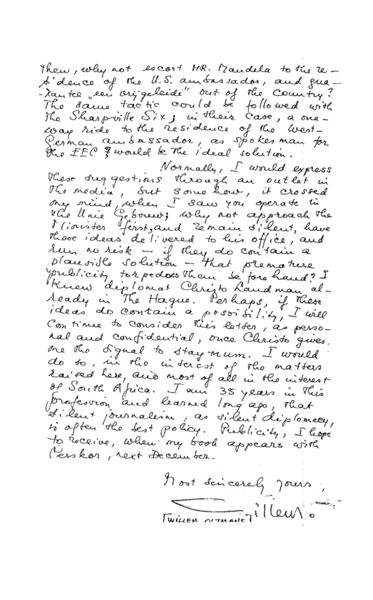 then, why not escort MR. Mandela to the re-
sidence of the U.S. ambassador, and gua-
rantee "een vrijgeleide" out of the country?
The same tactic could be followed with
the Sharpville Six; in their case, a one-
way ride to the residence of the West-
German ambassador, as spokesman for
the EEC, would be the ideal solution.
Normally, I would express
these suggestions through an outlet in
the media, but some how, it crossed
my mind, when I saw you operate in
the Unie Gebouw; why not approach the
Minister first, and remain silent, have
these ideas delivered to his office, and
run no risk – if they do contain a
plausible solution – that premature
publicity torpedoes them beforehand? I
knew diplomat Christo Landman al-
ready in The Hague. Perhaps, if these
ideas do contain a possibility, I will
continue to consider this letter, as perso-
nal and confidential, once Christo gives
me the signal to stay mum. I would
do so, in the interest of the matters
raised here, and most of all in the interest
of South Africa. I am 35 years in this
profession and learned long ago, that
silent journalism, as silent diplomacy,
is often the best policy. Publicity, I hope
to receive, when my book appears with
Perskor, next December.
Most sincerely yours,
Willem
WILLEM OLTMANS